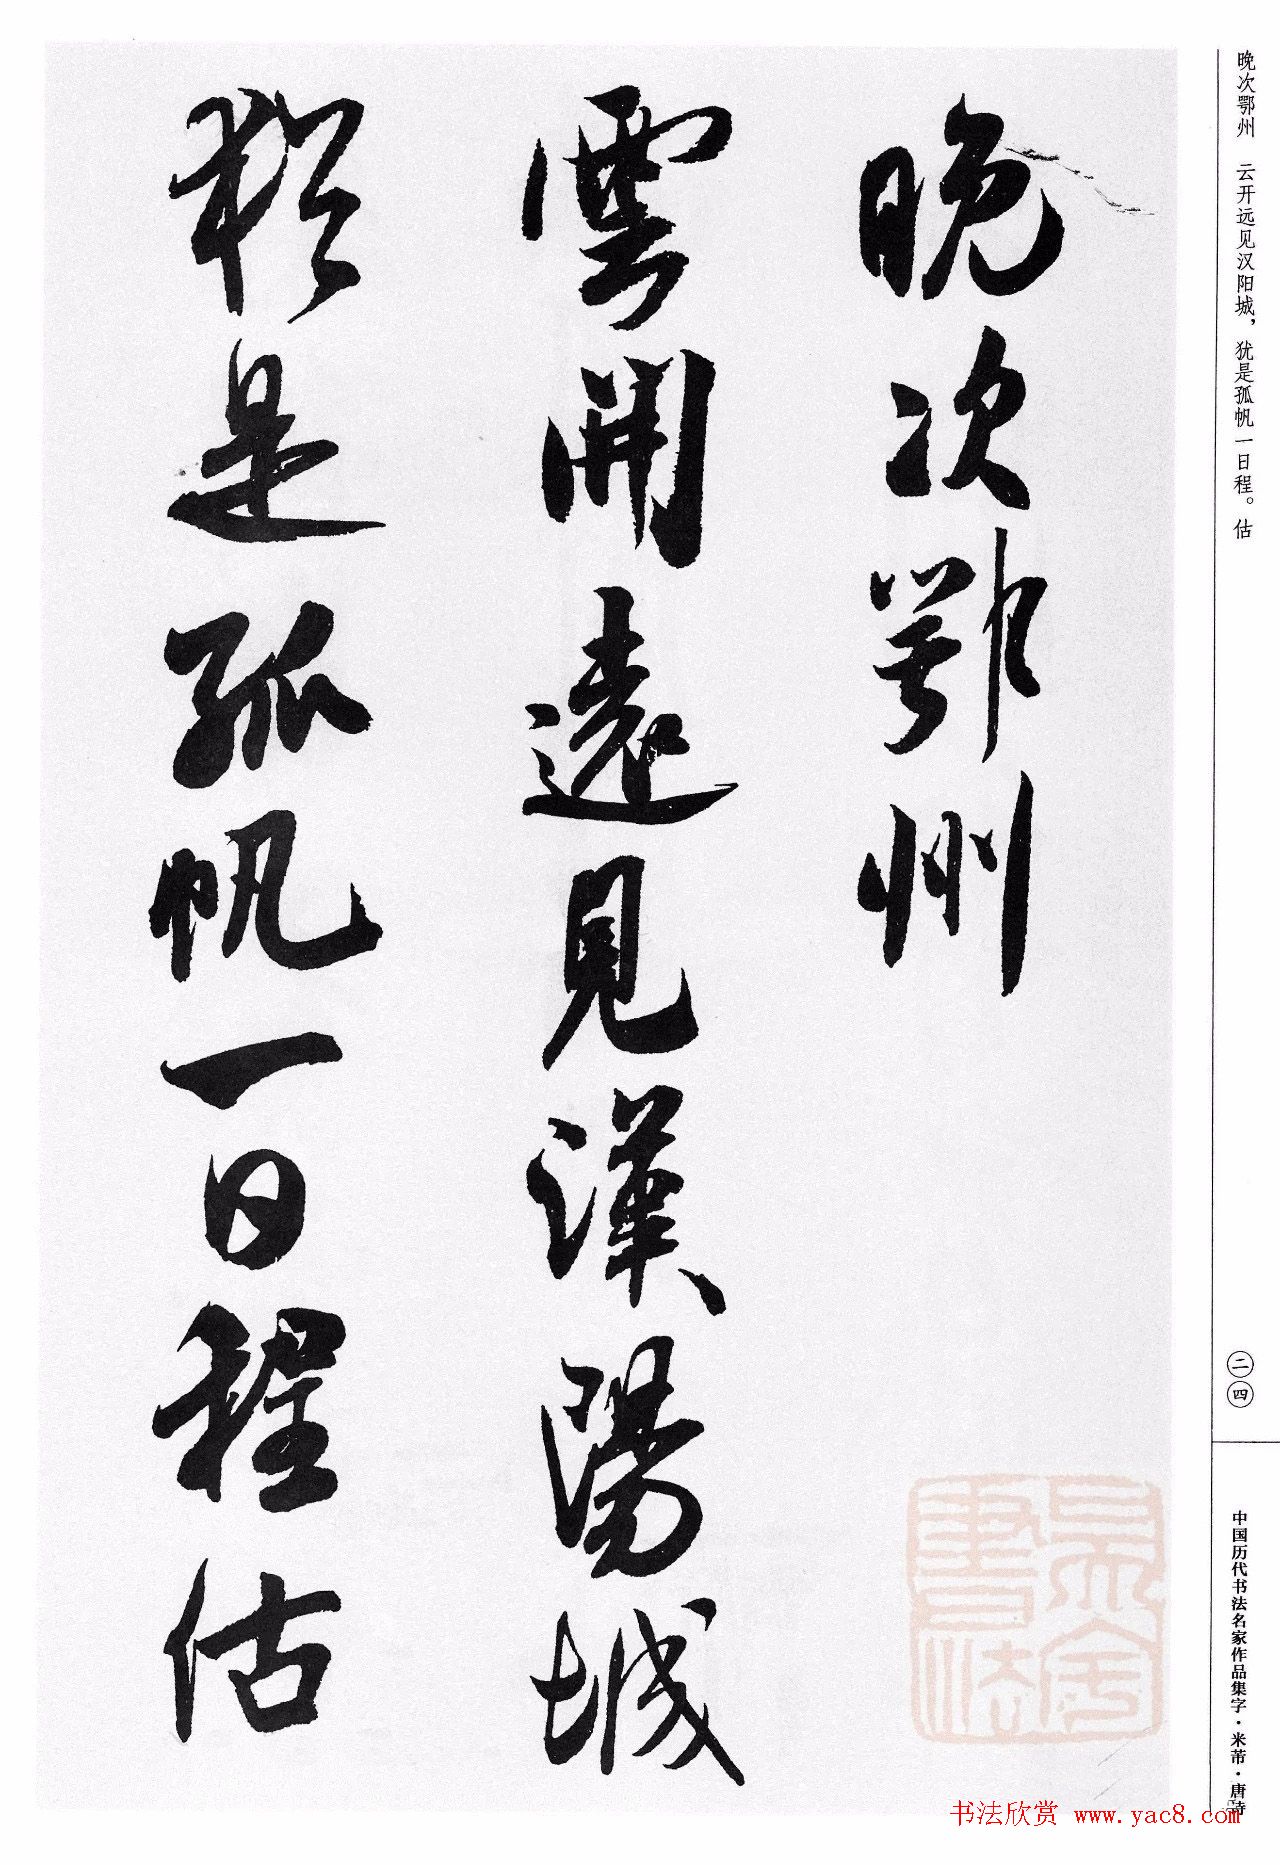 晚次鄂州 云开远见汉阳城，犹是孤帆一日程。估
晚次鄂州
雲開遠見漢陽城
猶是孤帆一日程估
二四
中国历代书法名家作品集字·米芾·唐诗
书法欣赏 www.yac8.com